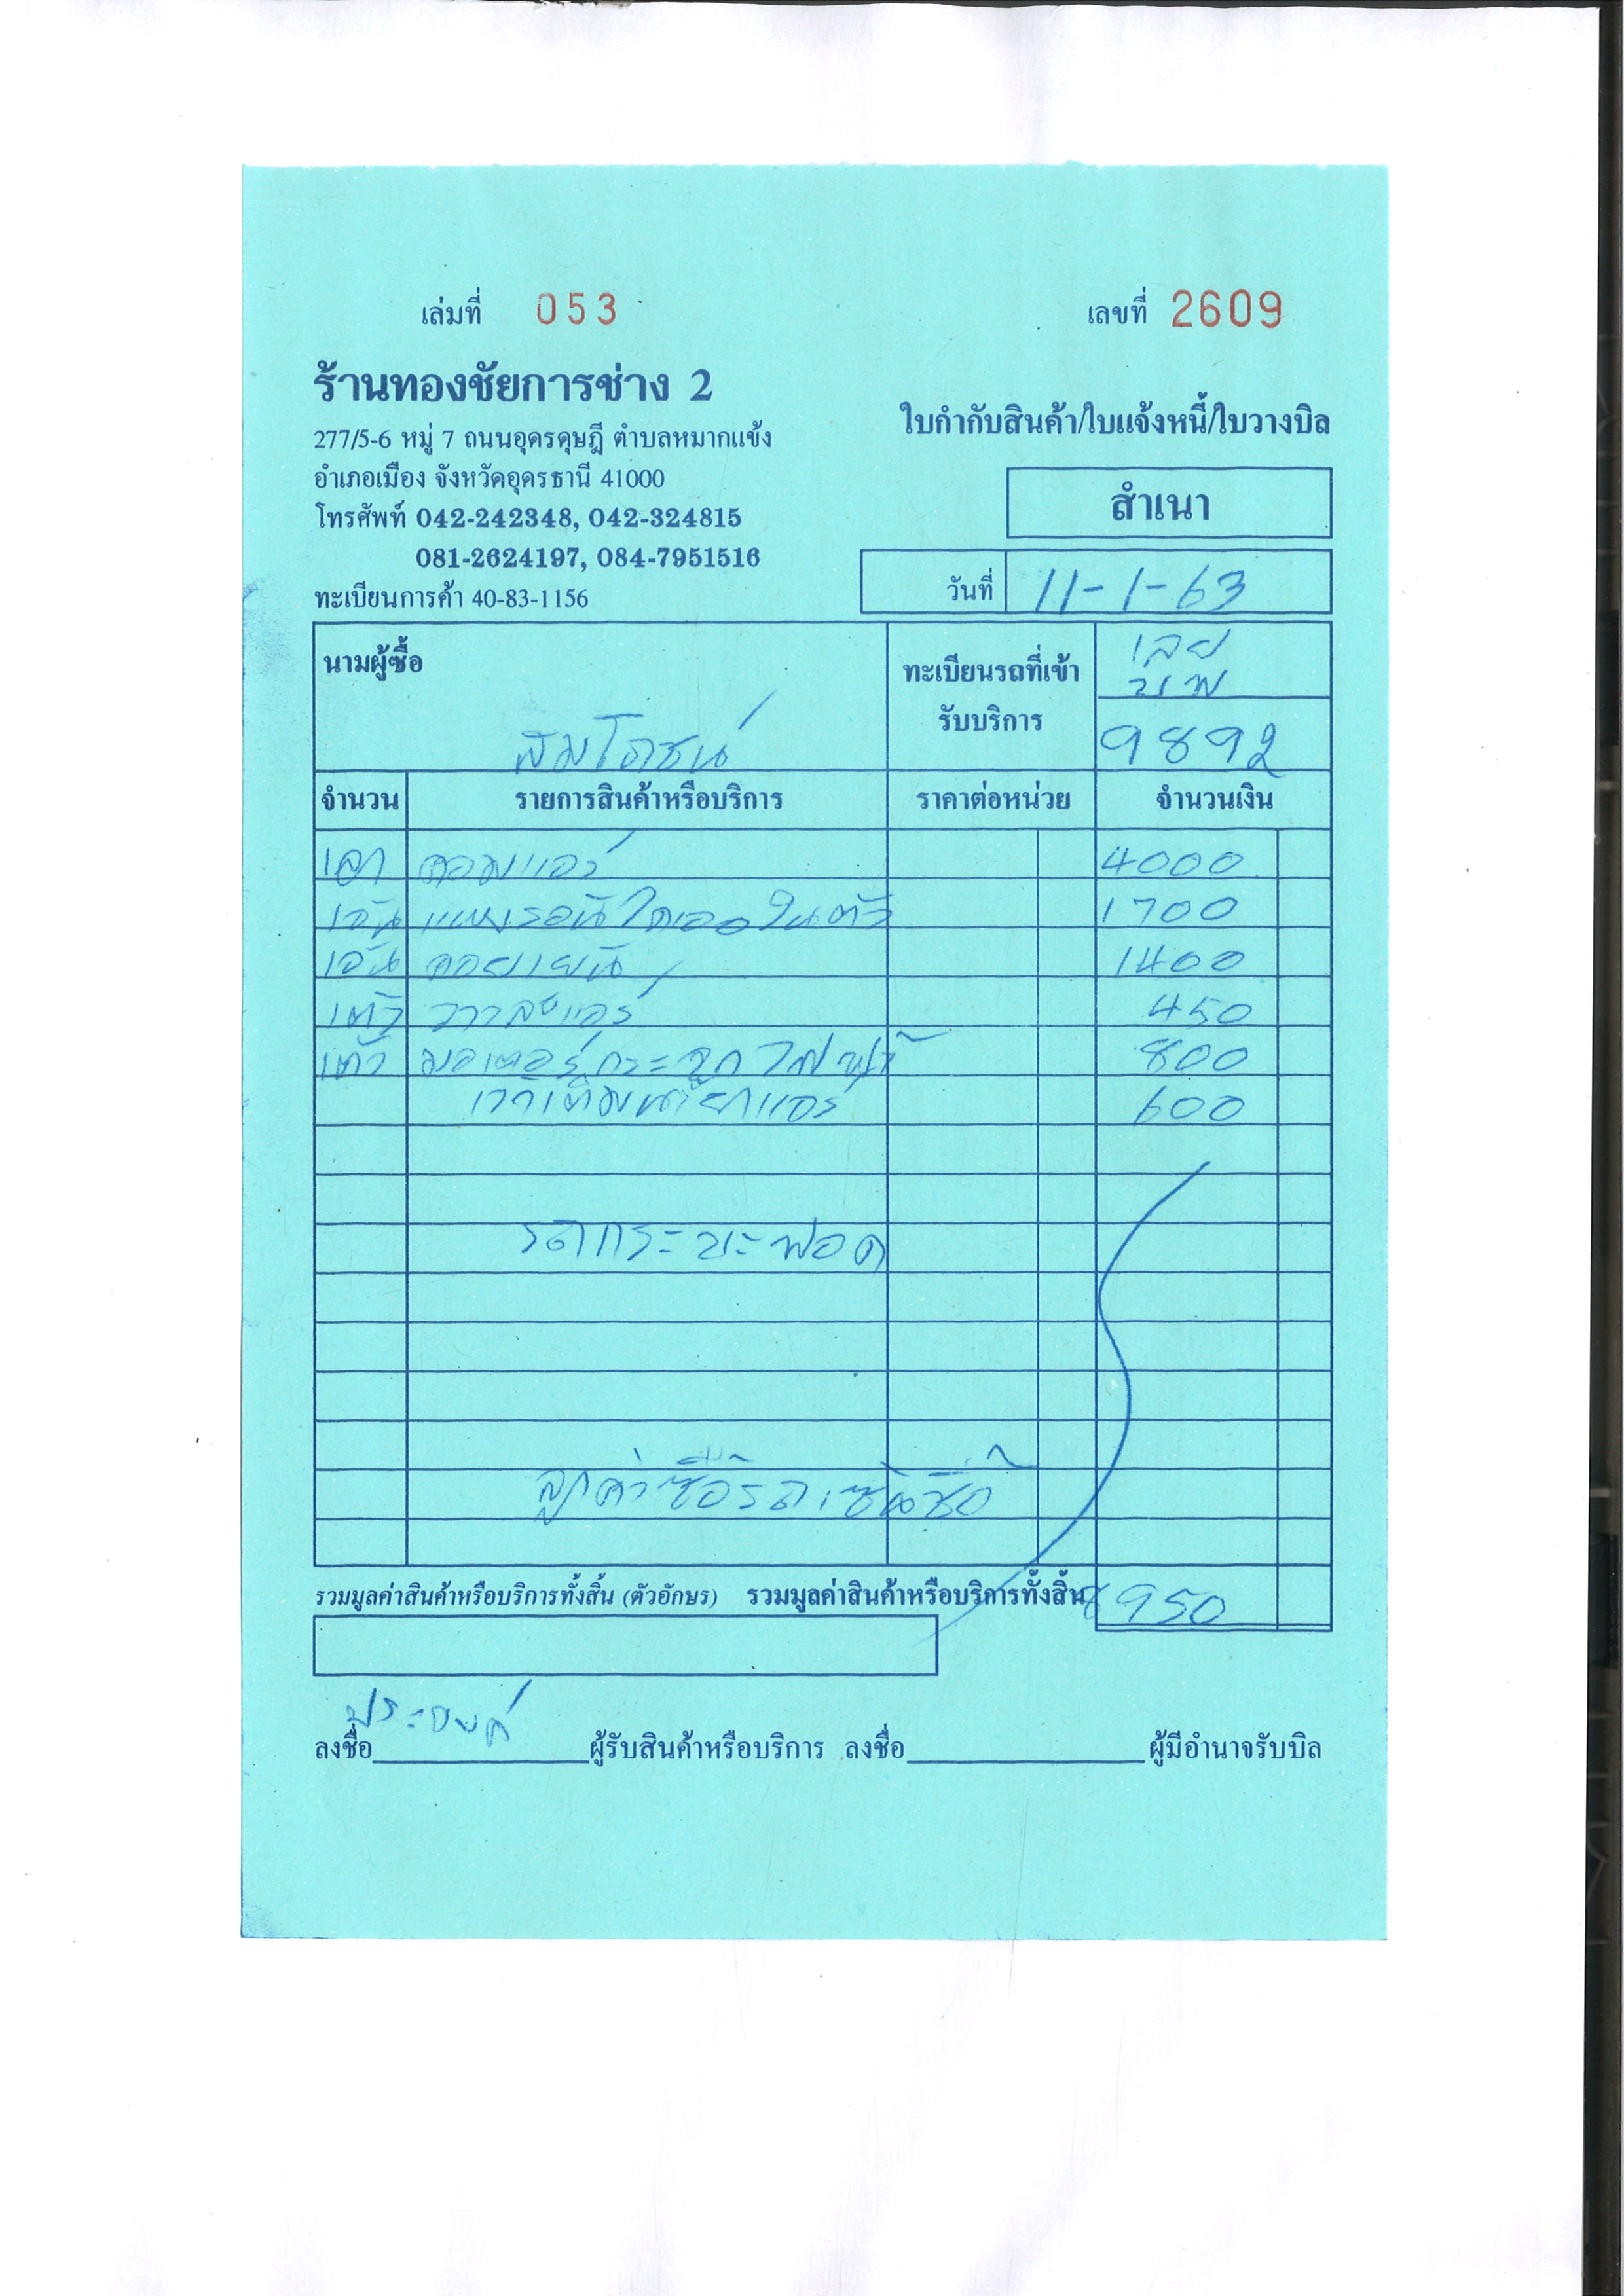 เล่มที่ 053
เลขที่ 2609
ร้านทองชัยการช่าง 2
277/5-6 หมู่ 7 ถนนอุดรดุษฎี ตำบลหมากแข้ง
อำเภอเมือง จังหวัดอุดรธานี 41000
โทรศัพท์ 042-242348, 042-324815
081-2624197, 084-7951516
ทะเบียนการค้า 40-83-1156
ใบกำกับสินค้า/ใบแจ้งหนี้/ใบวางบิล
สำเนา
วันที่ 11-1-63
นามผู้ซื้อ
สมโภชน์
ทะเบียนรถที่เข้า
รับบริการ
เลย
9892
จำนวน รายการสินค้าหรือบริการ ราคาต่อหน่วย จำนวนเงิน
คอมแอร์ 4000
1700
1อัน คอยเย็น 1400
1ตัว วาวล์แอร์ 450
1ตัว มอเตอร์กระจกไฟฟ้า 800
600
รถกระบะฟอด
ลูกค้าซื้อรถเซ็นชื่อ
รวมมูลค่าสินค้าหรือบริการทั้งสิ้น (ตัวอักษร) รวมมูลค่าสินค้าหรือบริการทั้งสิ้น 8950
ลงชื่อ ผู้รับสินค้าหรือบริการ ลงชื่อ ผู้มีอำนาจรับบิล